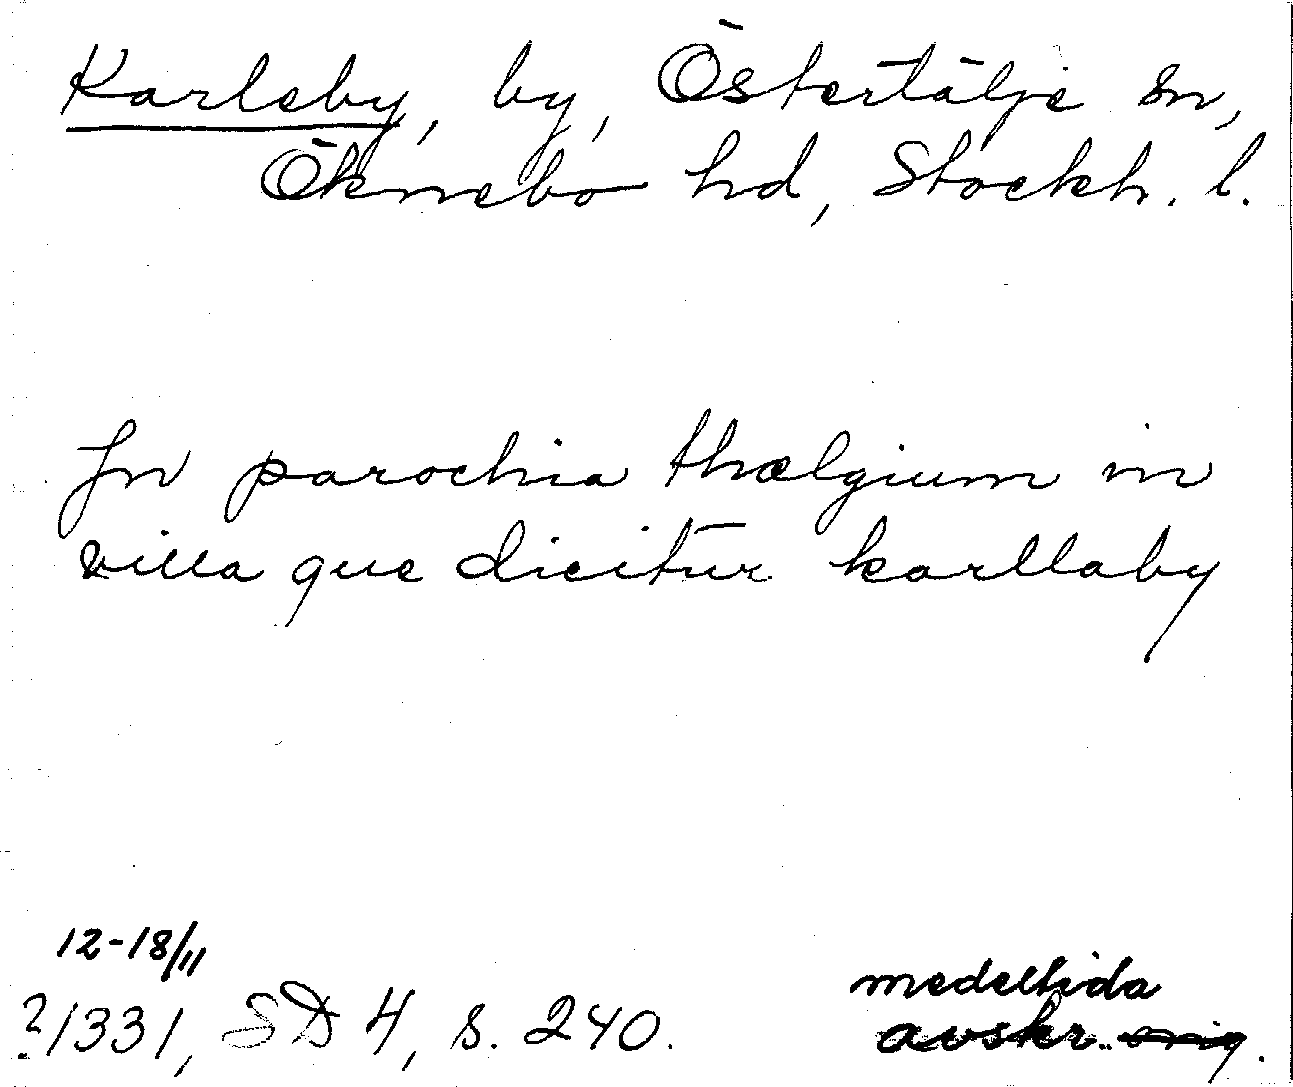 Karleby, by, Östertälje sn,
Öknebo hd, Stockh. l.
In parochia thælgium in
villa que dicitur karllaby
12-18/11
?/331, SD 4, s. 240.
medeltida
avskr. orig.